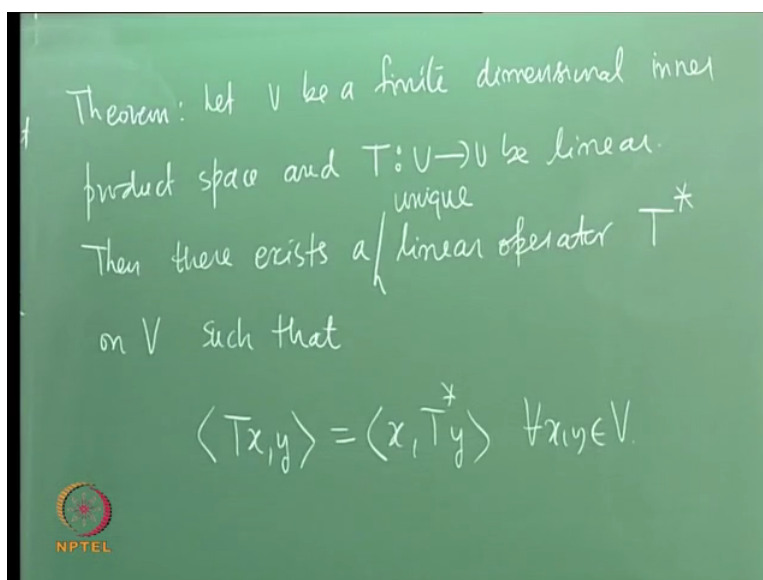 Theorem: Let V be a finite dimensional inner
product space and T: V→V be linear.
unique
Then there exists a linear operator T*
on V such that
⟨Tx, y⟩ = ⟨x, T*y⟩ ∀x, y ∈ V.
NPTEL